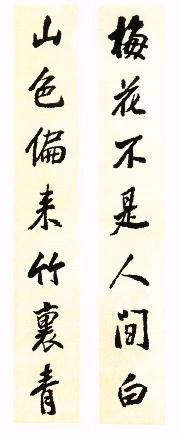 梅花不是人間白
山色偏来竹裏青